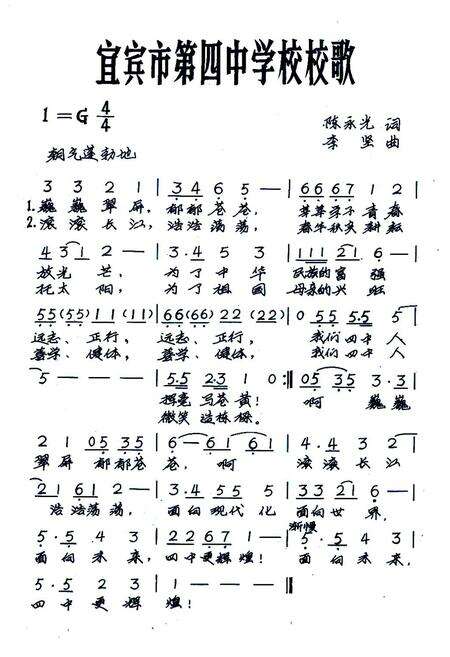 宜宾市第四中学校校歌
1=G 4/4
陈永光 词
李 坚 曲
朝气蓬勃地
3 3 2 1 | 3·4 6 5 — | 66 67 1 2 |
1.巍巍翠屏，郁郁苍苍， 莘莘学子 青春
2.滚滚长江，浩浩荡荡， 春华秋实 耕耘
4 3 1 2 — | 3·4 5 3 — | 111 21 6 — |
放光芒， 为了中华 民族的富强
托太阳， 为了祖国 母亲的兴旺
55(55) 11(11) | 66(66) 22(22) | 0 55 5·5 5 |
远志、正行， 远志、正行， 我们四中人
善学、健体， 善学、健体， 我们四中人
5 — — — | 5·5 2·3 1 0 :‖ 05 35 3·3 |
挥毫写苍黄！ 啊 巍巍
微笑造栋梁。
2 1 05 35 | 6 — 61 61 | 4·4 3 2 |
翠屏 郁郁苍 苍，啊 滚滚长江
21 61 2 — | 3·4 55 3 2 | 33 21 6 — |
浩浩荡荡， 面向现代化 面向世界，
渐慢
5·5 4 3 | 22 67 1 — | 5·5 4 3 |
面向未来， 四中更辉煌！ 面向未来，
5·5 2 3 | 1 — — — ‖
四中更辉煌！